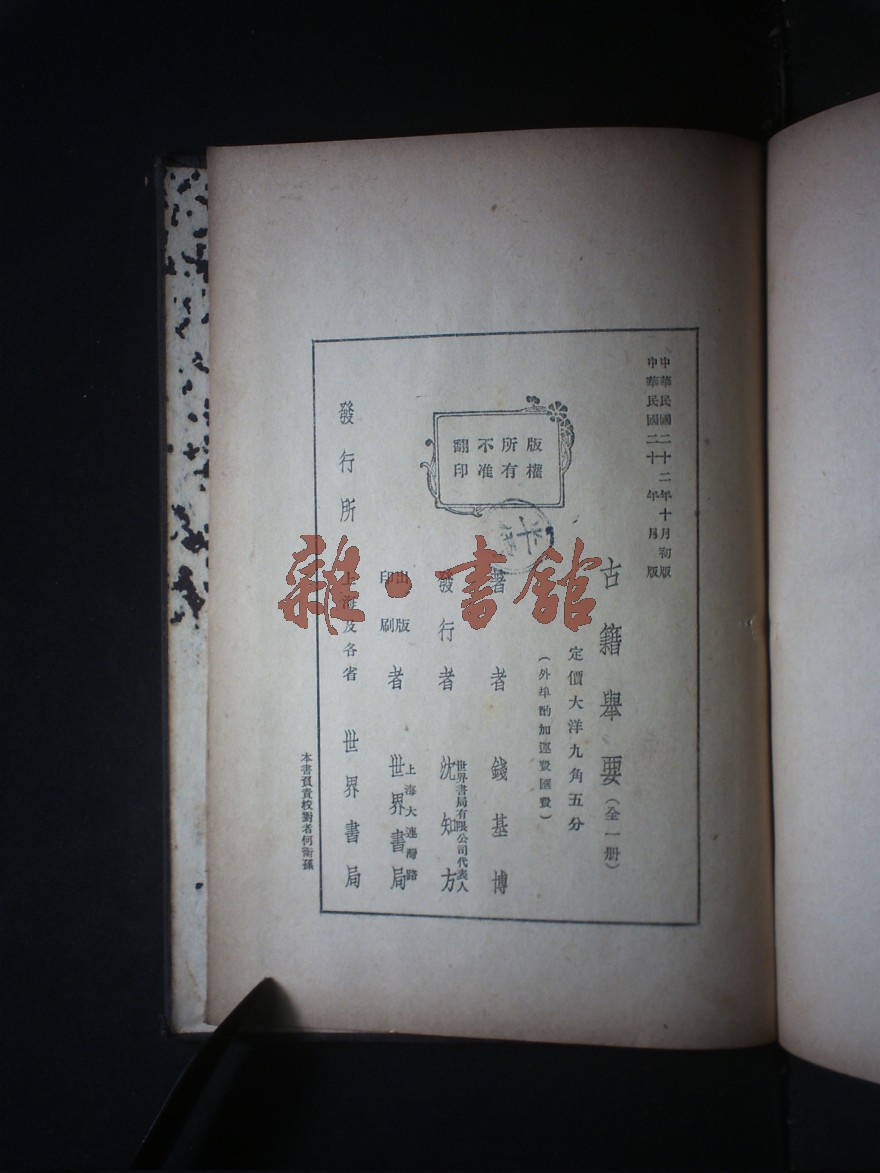 中華民國二十二年十月初版
中華民國二十　年　月　版
古籍舉要(全一册)
定價大洋九角五分
(外埠酌加運費匯費)
版權
所有
不准
翻印
著者 錢基博
發行者 世界書局有限公司代表人
沈知方
出版
印刷
者 上海大連灣路
世界書局
發行所 上海及各省 世界書局
本書負責校對者何衡孫
雜·書館